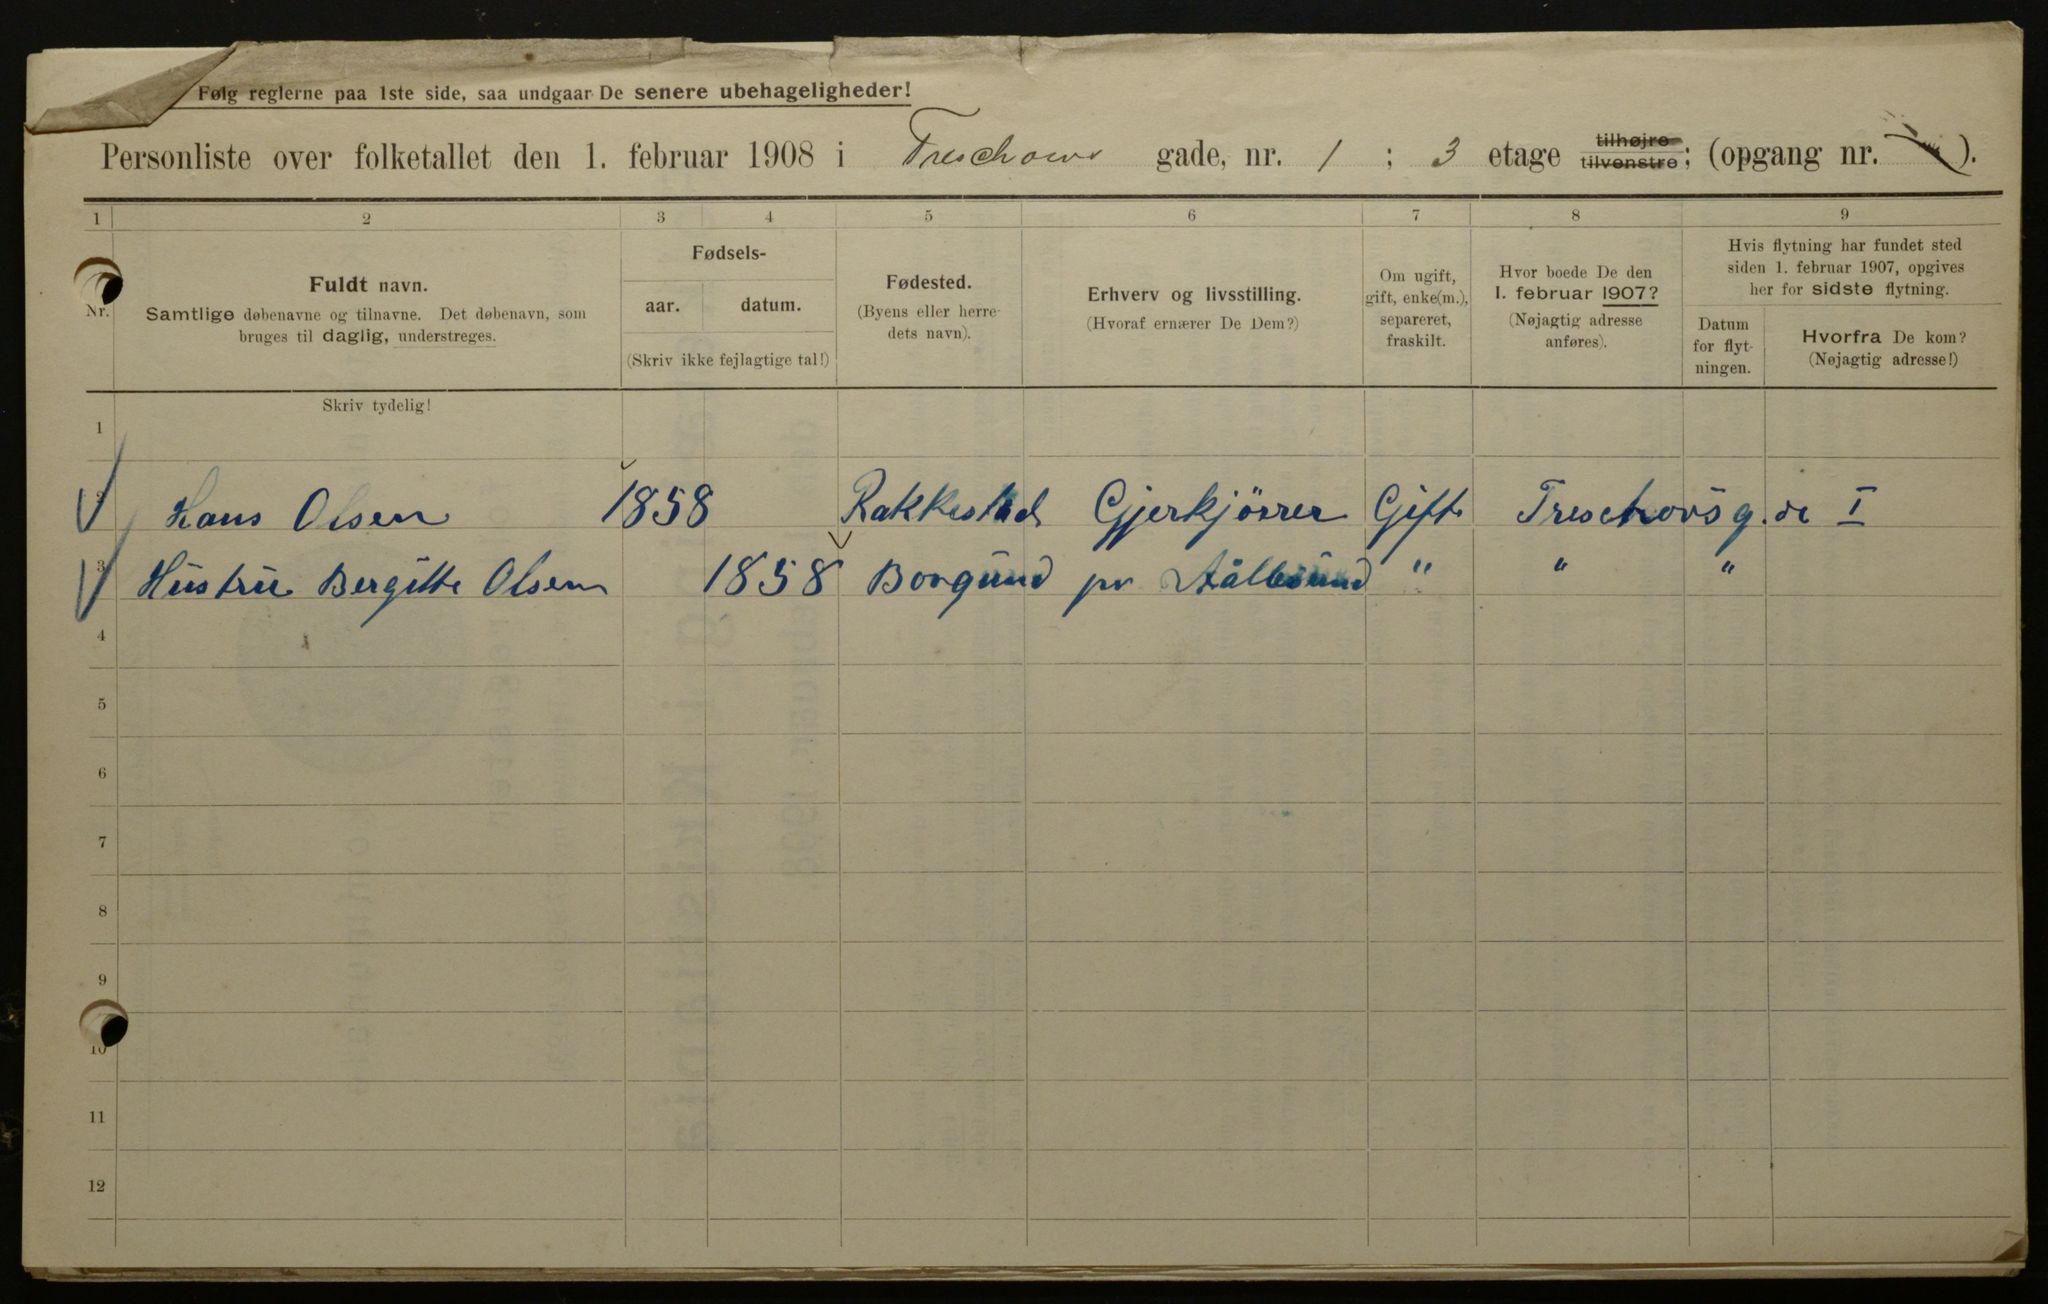 Følg reglerne paa 1ste side, saa undgaar De senere ubehageligheder!
Personliste over folketallet den 1. februar 1908 i Treschows gade, nr. 1 ; 3 etage tilhøjre tilvenstre; (opgang nr. ).
1 2 3 4 5 6 7 8 9
Nr.
Fuldt navn.
Samtlige døbenavne og tilnavne. Det døbenavn, som
bruges til daglig, understreges.
Fødsels-
aar. datum.
(Skriv ikke fejlagtige tal!)
Fødested.
(Byens eller herre-
dets navn).
Erhverv og livsstilling.
(Hvoraf ernærer De Dem?)
Om ugift,
gift, enke(m.),
separeret,
fraskilt.
Hvor boede De den
1. februar 1907?
(Nøjagtig adresse
anføres).
Hvis flytning har fundet sted
siden 1. februar 1907, opgives
her for sidste flytning.
Datum
for flyt-
ningen.
Hvorfra De kom?
(Nøjagtig adresse!)
Skriv tydelig!
1
2 Hans Olsen 1858 Rakkestad Gjerkjörer Gift Treschovsg. I
3 Hustru Bergitte Olsen 1858 Borgund pr Aalesund " " "
4
5
6
7
8
9
10
11
12